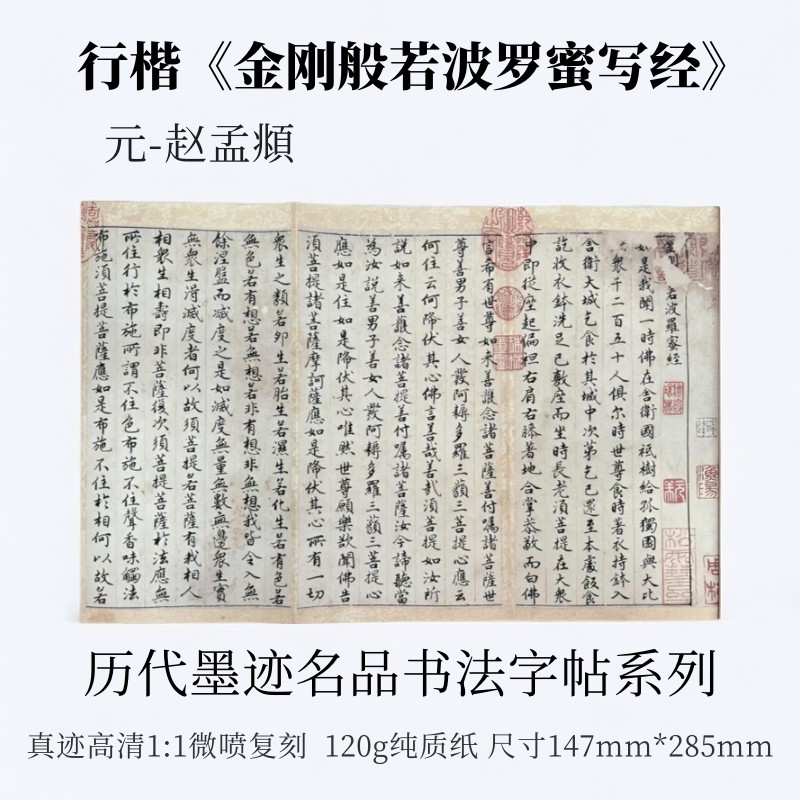 行楷《金刚般若波罗蜜写经》
元-赵孟頫
若波羅蜜經
如是我聞一時佛在舍衛國祇樹給孤獨園與大比
衆千二百五十人俱尔時世尊食時著衣持鉢入
舍衛大城乞食於其城中次第乞已還至本處飯食
訖收衣鉢洗足已敷座而坐時長老須菩提在大衆
中即從座起偏袒右肩右膝著地合掌恭敬而白佛
言希有世尊如来善護念諸菩薩善付囑諸菩薩世
尊善男子善女人發阿耨多羅三藐三菩提心應云
何住云何降伏其心佛言善哉善哉須菩提如汝所
說如来善護念諸菩薩善付囑諸菩薩汝今諦聽當
為汝說善男子善女人發阿耨多羅三藐三菩提心
應如是住如是降伏其心唯然世尊願樂欲聞佛告
須菩提諸菩薩摩訶薩應如是降伏其心所有一切
衆生之類若卵生若胎生若濕生若化生若有色若
無色若有想若無想若非有想非無想我皆令入無
餘涅盤而滅度之是如滅度無量無數無邊衆生實
無衆生得滅度者何以故須菩提若菩薩有我相人
相衆生相壽即非菩薩復次須菩提菩薩於法應無
所住行於布施所謂不住色布施不住聲香味觸法
布施須菩提菩薩應如是布施不住於相何以故若
历代墨迹名品书法字帖系列
真迹高清1:1微喷复刻 120g纯质纸 尺寸147mm*285mm